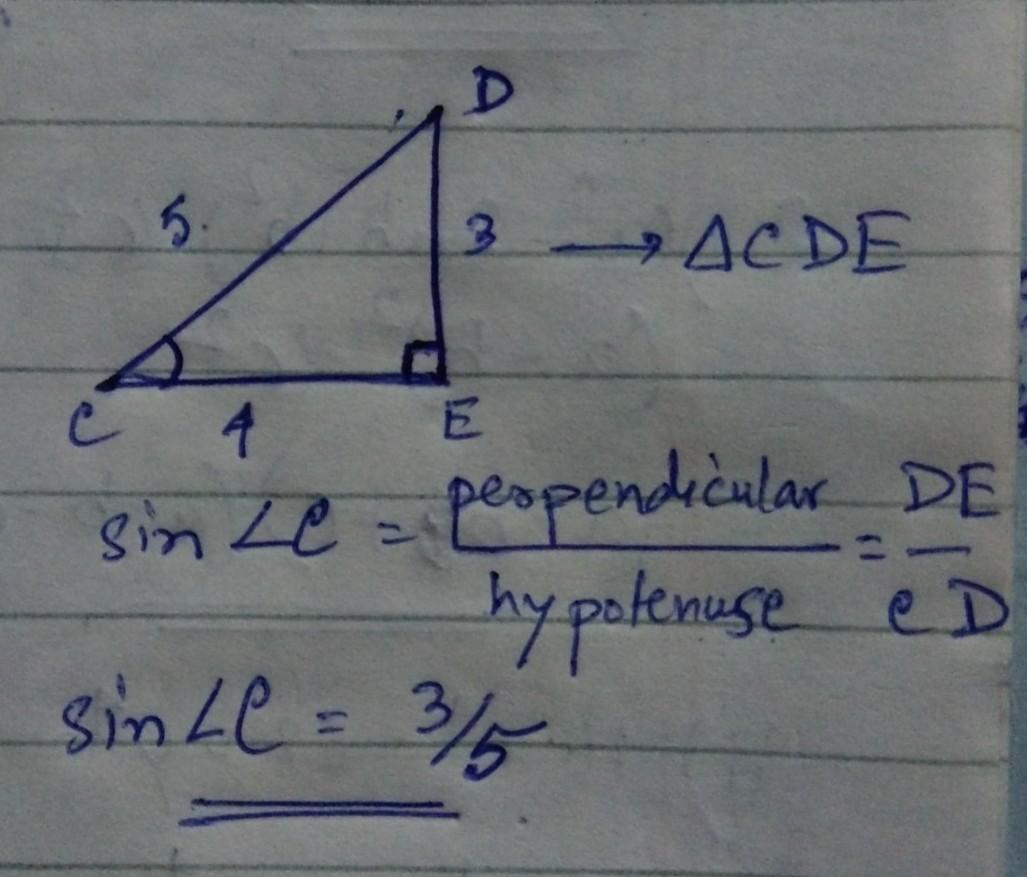 D
5.
3 → ΔCDE
C 4 E
sin ∠C = perpendicular / hypotenuse = DE / CD
sin ∠C = 3/5